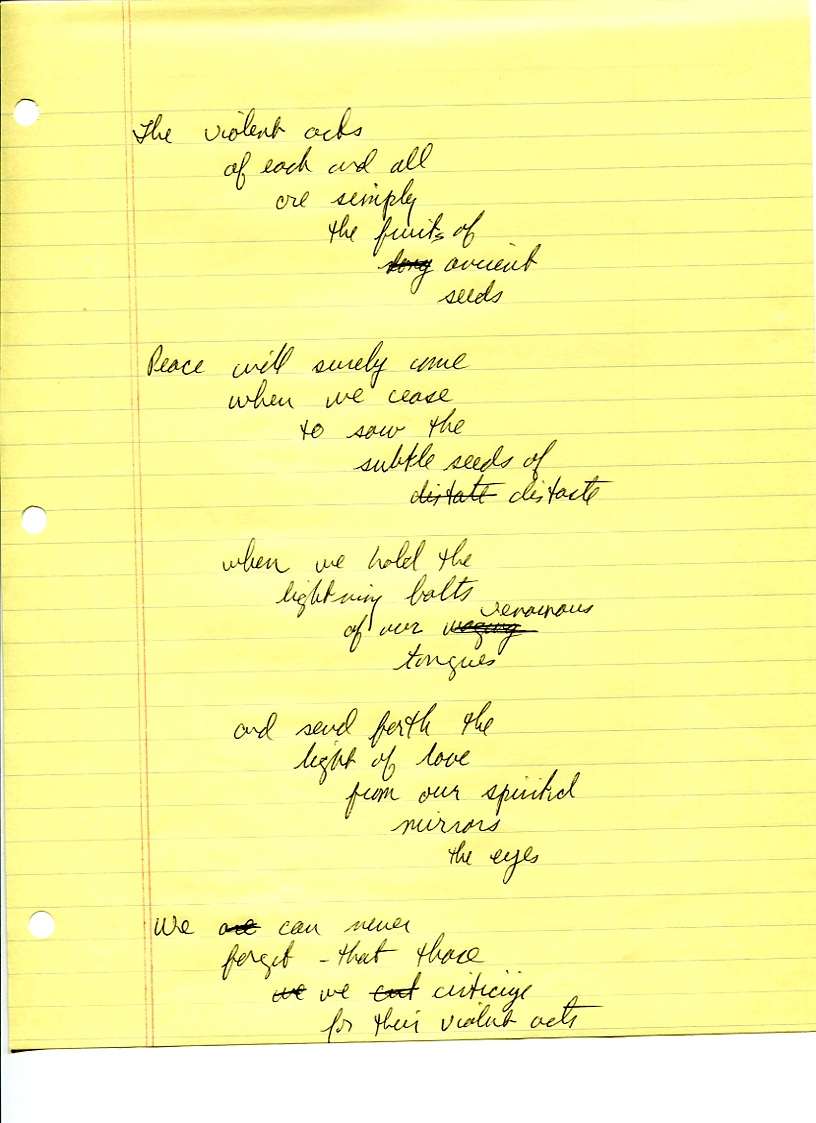 The violent acts
of each and all
are simply
the fruits of
long ancient
seeds
Peace will surely come
when we cease
to sow the
subtle seeds of
distate distaste
when we hold the
lightning bolts
venomous
of our waging
tongues
and send forth the
light of love
from our spirited
mirrors
the eyes
We are can never
forget - that those
we we cut criticize
for their violent acts